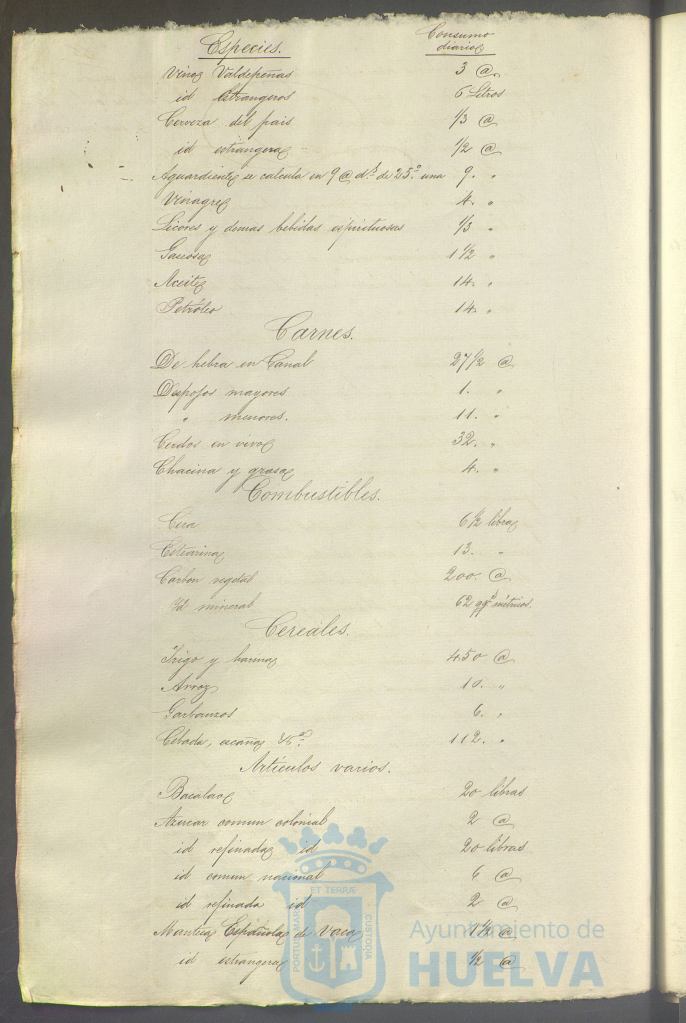 Especies. Consumo diario
Vinos Valdepeñas 3 @.
id estrangeros 6 Litros
Cerveza del pais 1/3 @
id estrangera 1/2 @
Aguardiente, se calcula en 9 @ d.s de 25.º una 9. "
Vinagre 4. "
Licores y demas bebidas espirituosas 1/3 "
Gaseosa 1 1/2 "
Aceite 14. "
Petróleo 14. "
Carnes.
De hebra en Canal 27 1/2 @
Despojos mayores 1. "
" menores. 11. "
Cerdos en vivo 32. "
Chacina y grasa 4. "
Combustibles.
Cera 6 1/2 libras
Estearina 13. "
Carbon vegetal 200. @
Id mineral 62 qq.s métricos.
Cereales.
Trigo y harina 450 @
Arroz 10. "
Garbanzos 6. "
Cebada, escaña &.ª 112. "
Artículos varios.
Bacalao 20 libras
Azucar comun colonial 2 @
id refinada id 20 libras
id comun nacional 6 @
id refinada id 2 @
Manteca Española de Vaca 1 1/2 @
id estrangera 1/2 @
PORTUS MARIS ET TERRÆ CUSTODIA
Ayuntamiento de
HUELVA